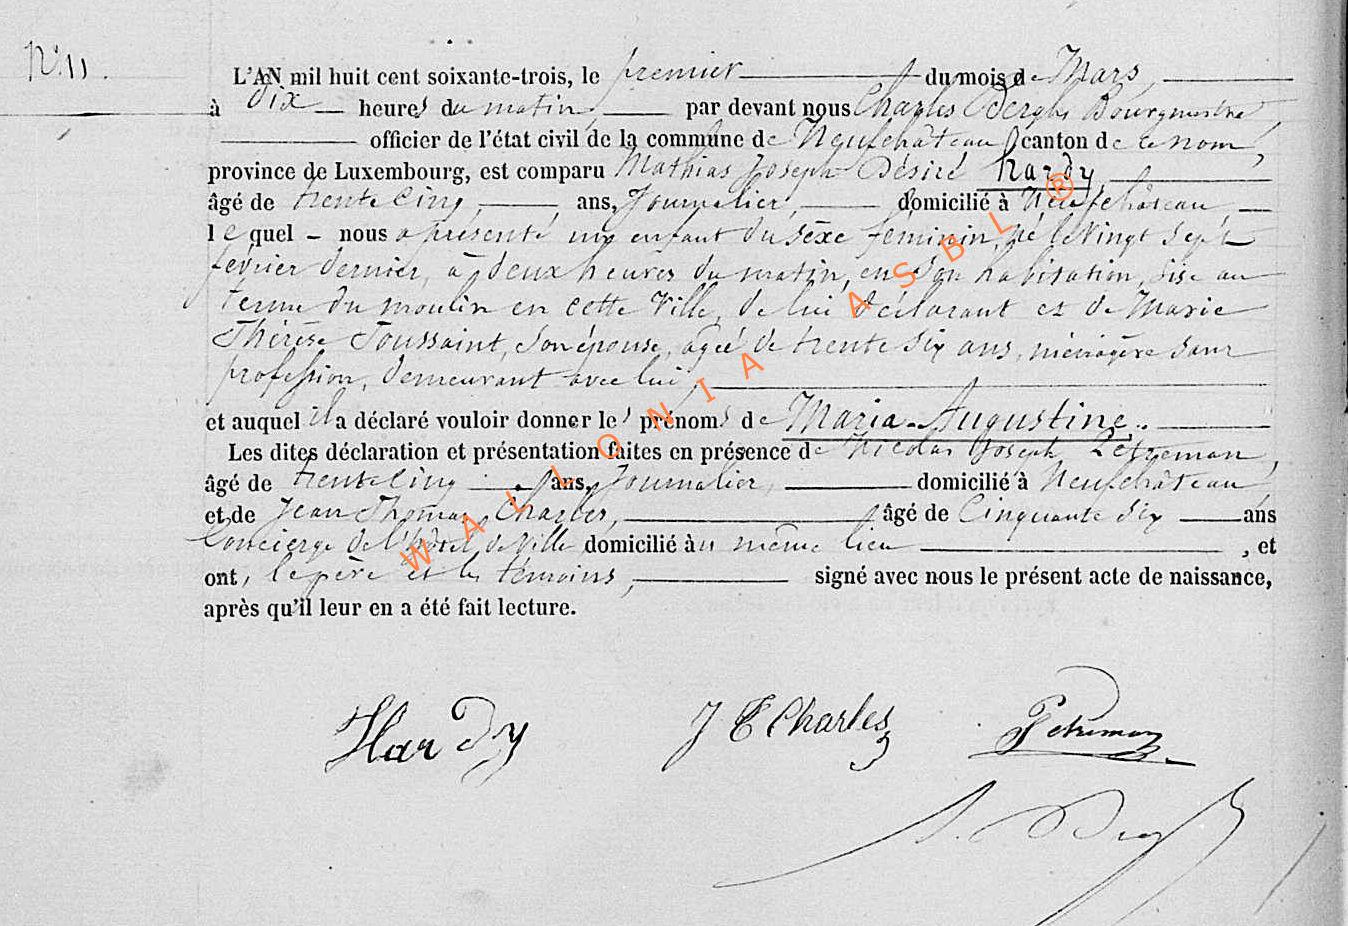 N° 11.
L'AN mil huit cent soixante-trois, le premier du mois de Mars,
à dix heures du matin, par devant nous Charles Bourgmestre,
officier de l'état civil de la commune de Neufchâteau canton de ce nom,
province de Luxembourg, est comparu Mathias Joseph Désiré Hardy,
âgé de trente cinq, ans, Journalier, domicilié à Neufchâteau,
lequel nous a présenté un enfant du sèxe féminin, né le vingt sept
février dernier, à deux heures du matin, en son habitation, sise au
terme du moulin en cette Ville, de lui déclarant et de Marie
Thérèse Toussaint, son épouse, agée de trente six ans, ménagère sans
profession, demeurant avec lui,
et auquel il a déclaré vouloir donner les prénoms de Maria-Augustine.
Les dites déclaration et présentation faites en présence de Nicolas Joseph Petreman,
âgé de trente cinq ans, Journalier, domicilié à Neufchâteau
et de Jean Thomas Charles, âgé de Cinquante six ans
Concierge de l'hôtel de Ville domicilié au même lieu, et
ont, le père et les témoins, signé avec nous le présent acte de naissance,
après qu'il leur en a été fait lecture.
Hardy J T Charles Petreman
WALLONIA ASBL ®